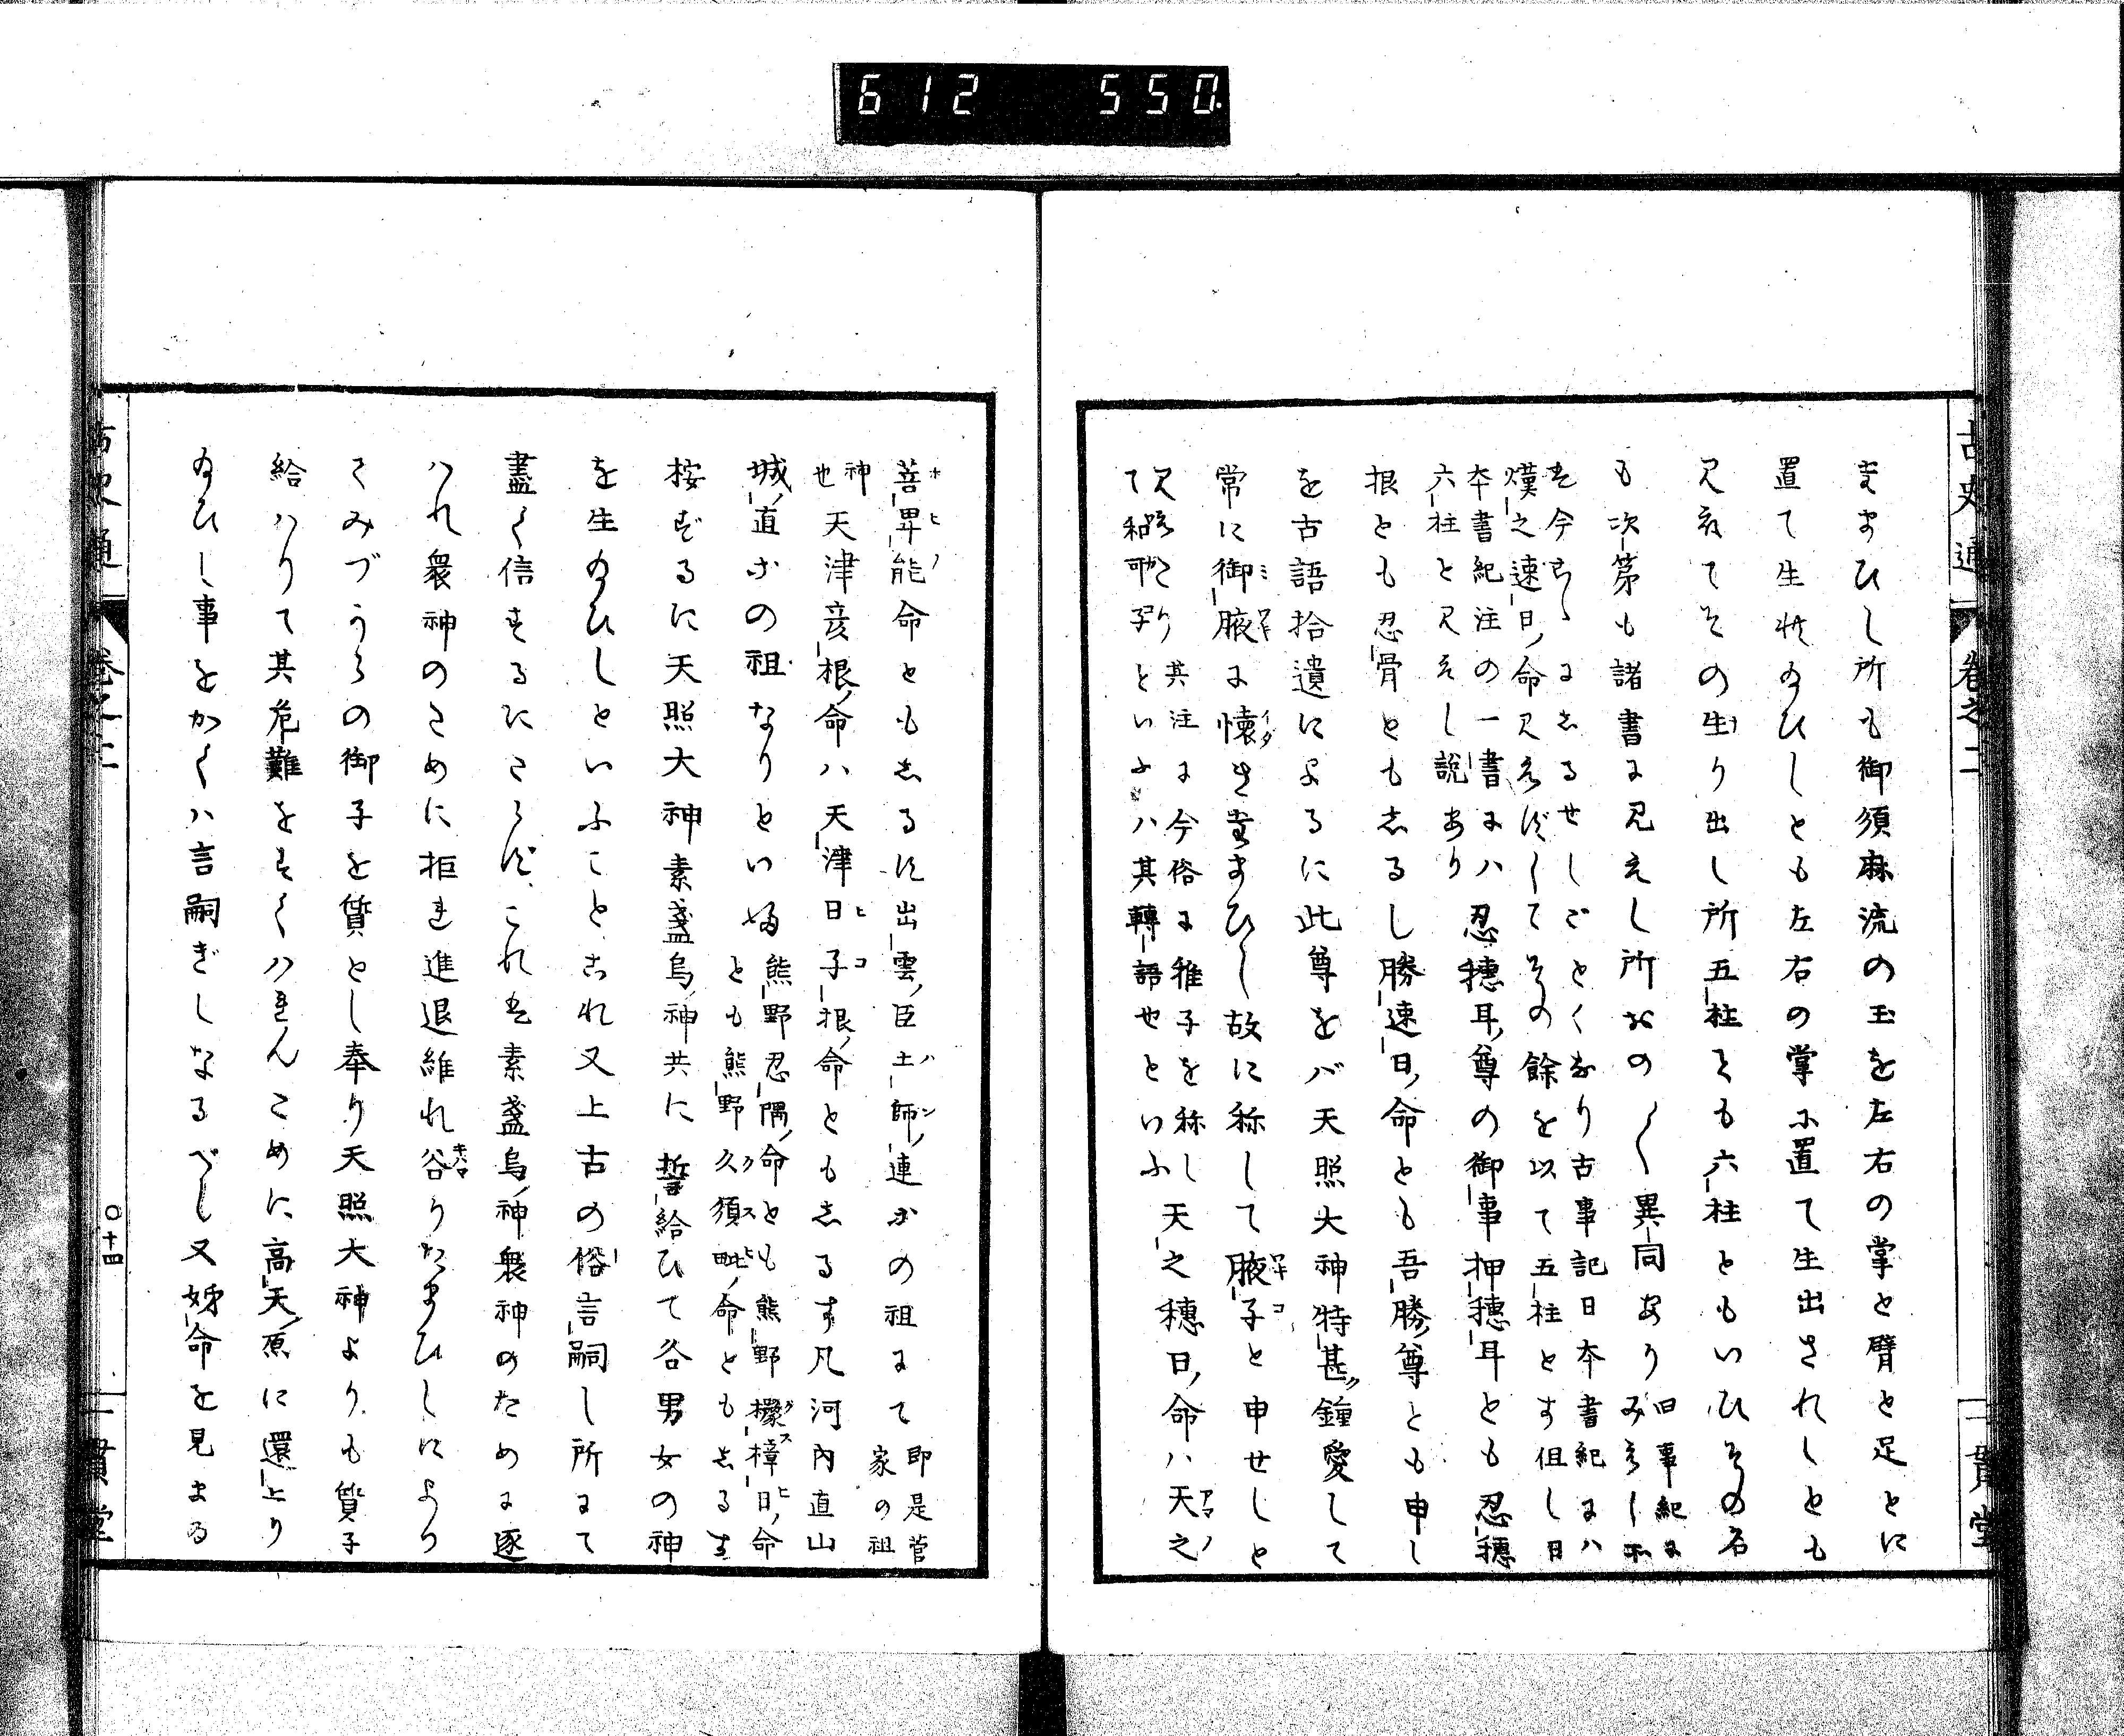 612 550
古史通 卷之二 一貫堂
ままひし所も御須麻流の玉を左右の掌と臂と足とに
置て生れ給ひしとも左右の掌に置て生出されしとも
見えてその生り出し所五柱とも六柱ともいひその名
も次第も諸書に見えし所おの〱異同あり
旧事紀に
みえし所
は今こゝにしるせしごとくなり古事記日本書紀には
熯之速日命見えずしてその餘を以て五柱とす但し日
本書紀注の一書には
六柱と見えし説あり
忍穗耳尊の御事押穗耳とも忍穗
根とも忍骨ともしるし勝速日命とも吾勝尊とも申し
を古語拾遺によるに此尊をバ天照大神特甚鐘愛して
常に御腋に懐き給ひし故に称して腋子と申せしと
見えたり其注に今俗に稚子を称し
て和可子といふハ其轉語也といふ
天之穗日命ハ天之
菩卑能命ともしるす出雲臣土師連等の祖にて
即是菅
家の祖
神
也
天津彦根命ハ天津日子根命ともしるす凡河内直山
城直等の祖なりといふ
熊野忍隅命とも熊野櫲樟日命
とも熊野久須毗命ともしるす
按ずるに天照大神素盞烏神共に誓給ひて各男女の神
を生給ひしといふことこれ又上古の俗言嗣し所にて
盡く信ずるにたらずこれは素盞烏神衆神のために逐
ハれ衆神のために拒れ進退維れ谷りたまひしにより
てみづからの御子を質とし奉り天照大神よりも質子
給ハりて其危難をすくハれんために高天原に還上り
給ひし事をかくハ言嗣ぎしなるべし又姉命を見まゐ
古史通 卷之二 〇十四 一貫堂